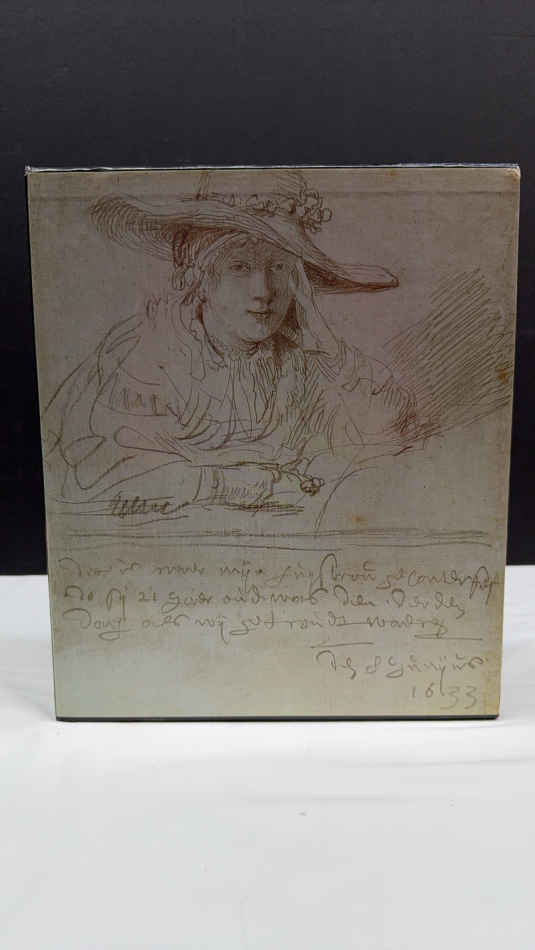 dit is naer mijn huysvrou geconterfeyt
do sy 21 jaer oud was den derden
dach als wij getroudt waeren
den 8 junyus
1633